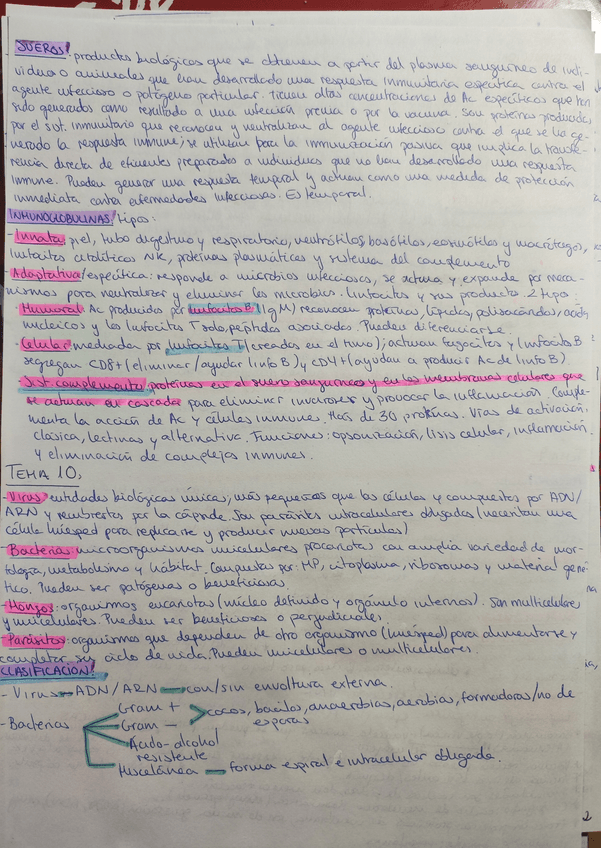 SUEROS: productos biológicos que se obtienen a partir del plasma sanguíneo de indi-
viduos o animales que han desarrollado una respuesta inmunitaria específica contra el
agente infeccioso o patógeno particular. Tienen altas concentraciones de Ac específicos que han
sido generados como resultado a una infección previa o por la vacuna. Son proteínas producidas
por el sist. inmunitario que reconocen y neutralizan al agente infeccioso contra el que se ha ge-
nerado la respuesta inmune; se utilizan para la inmunización pasiva que implica la transfe-
rencia directa de eficientes preparados a individuos que no han desarrollado una respuesta
inmune. Pueden generar una respuesta temporal y actuan como una medida de protección
inmediata contra enfermedades infecciosas. Es temporal.
INMUNOGLOBULINAS tipos:
- Innata: piel, tubo digestivo y respiratorio, neutrófilos, basófilos, eosinófilos y macrófagos,
linfocitos citolíticos NK, proteínas plasmáticas y sistema del complemento
- Adaptativa/específica: responde a microbios infecciosos, se activa y expande por meca-
nismos para neutralizar y eliminar los microbios. Linfocitos y sus productos. 2 tipos:
· Humoral: Ac producidos por linfocitos B (IgM) reconocen proteínas, lípidos, polisacáridos, ácidos
nucleicos y los linfocitos T solo, péptidos asociados. Pueden diferenciarse.
· Celular: mediada por linfocitos T (creados en el timo); actuan fagocitos y linfocito B
segregan CD8+ (eliminar/ayudar linfo B) y CD4+ (ayudan a producir Ac de linfo B)
· Sist. complemento: proteínas en el suero sanguíneo y en las membranas celulares que
se activan en cascada para eliminar invasores y provocar la inflamación. Comple-
menta la acción de Ac y células inmunes. Más de 30 proteínas. Vías de activación:
clásica, lectinas y alternativa. Funciones: opsonización, lisis celular, inflamación
y eliminación de complejos inmunes.
TEMA 10,
- Virus: entidades biológicas únicas, más pequeños que las células y compuestos por ADN/
ARN y recubiertos por la cápside. Son parásitos intracelulares obligados (necesitan una
célula huésped para replicarse y producir nuevas partículas)
- Bacterias: microorganismos unicelulares procariotas con amplia variedad de mor-
fología, metabolismo y hábitat. Compuestas por: MP, citoplasma, ribosomas y material gené-
tico. Pueden ser patógenas o beneficiosas.
- Hongos: organismos eucariotas (núcleo definido y orgánulo internos). Son multicelulares
y unicelulares. Pueden ser beneficiosos o perjudiciales.
- Parásitos: organismos que dependen de otro organismo (huésped) para alimentarse y
completar su ciclo de vida. Pueden unicelulares o multicelulares.
CLASIFICACIÓN:
- Virus — ADN/ARN — con/sin envoltura externa.
- Bacterias
Gram +
Gram -
cocos, bacilos, anaerobias, aerobias, formadoras/no de
esporas
Ácido-alcohol
resistente
Miscelánea — forma espiral e intracelular obligada.
2